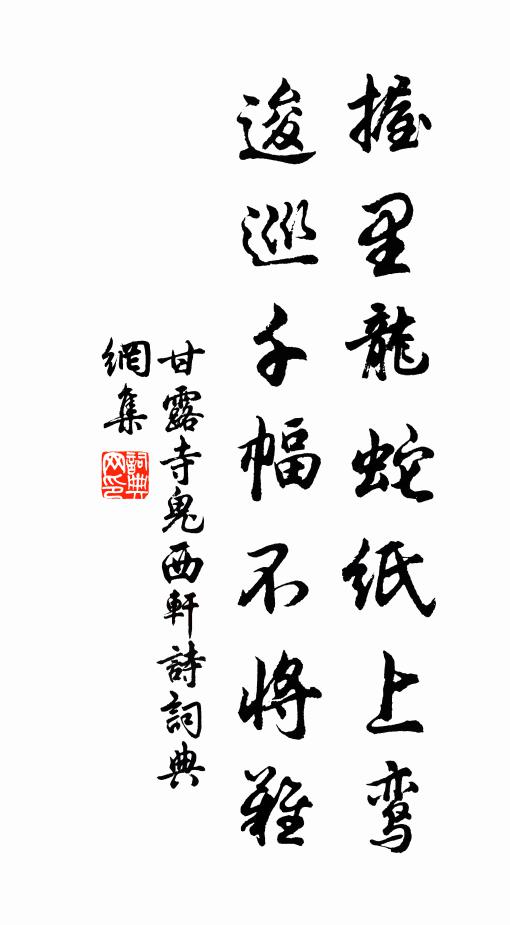 握里龍蛇纸上鸾
逡巡千幅不將難
甘露寺鬼西軒詩詞典
網集
詞典網印